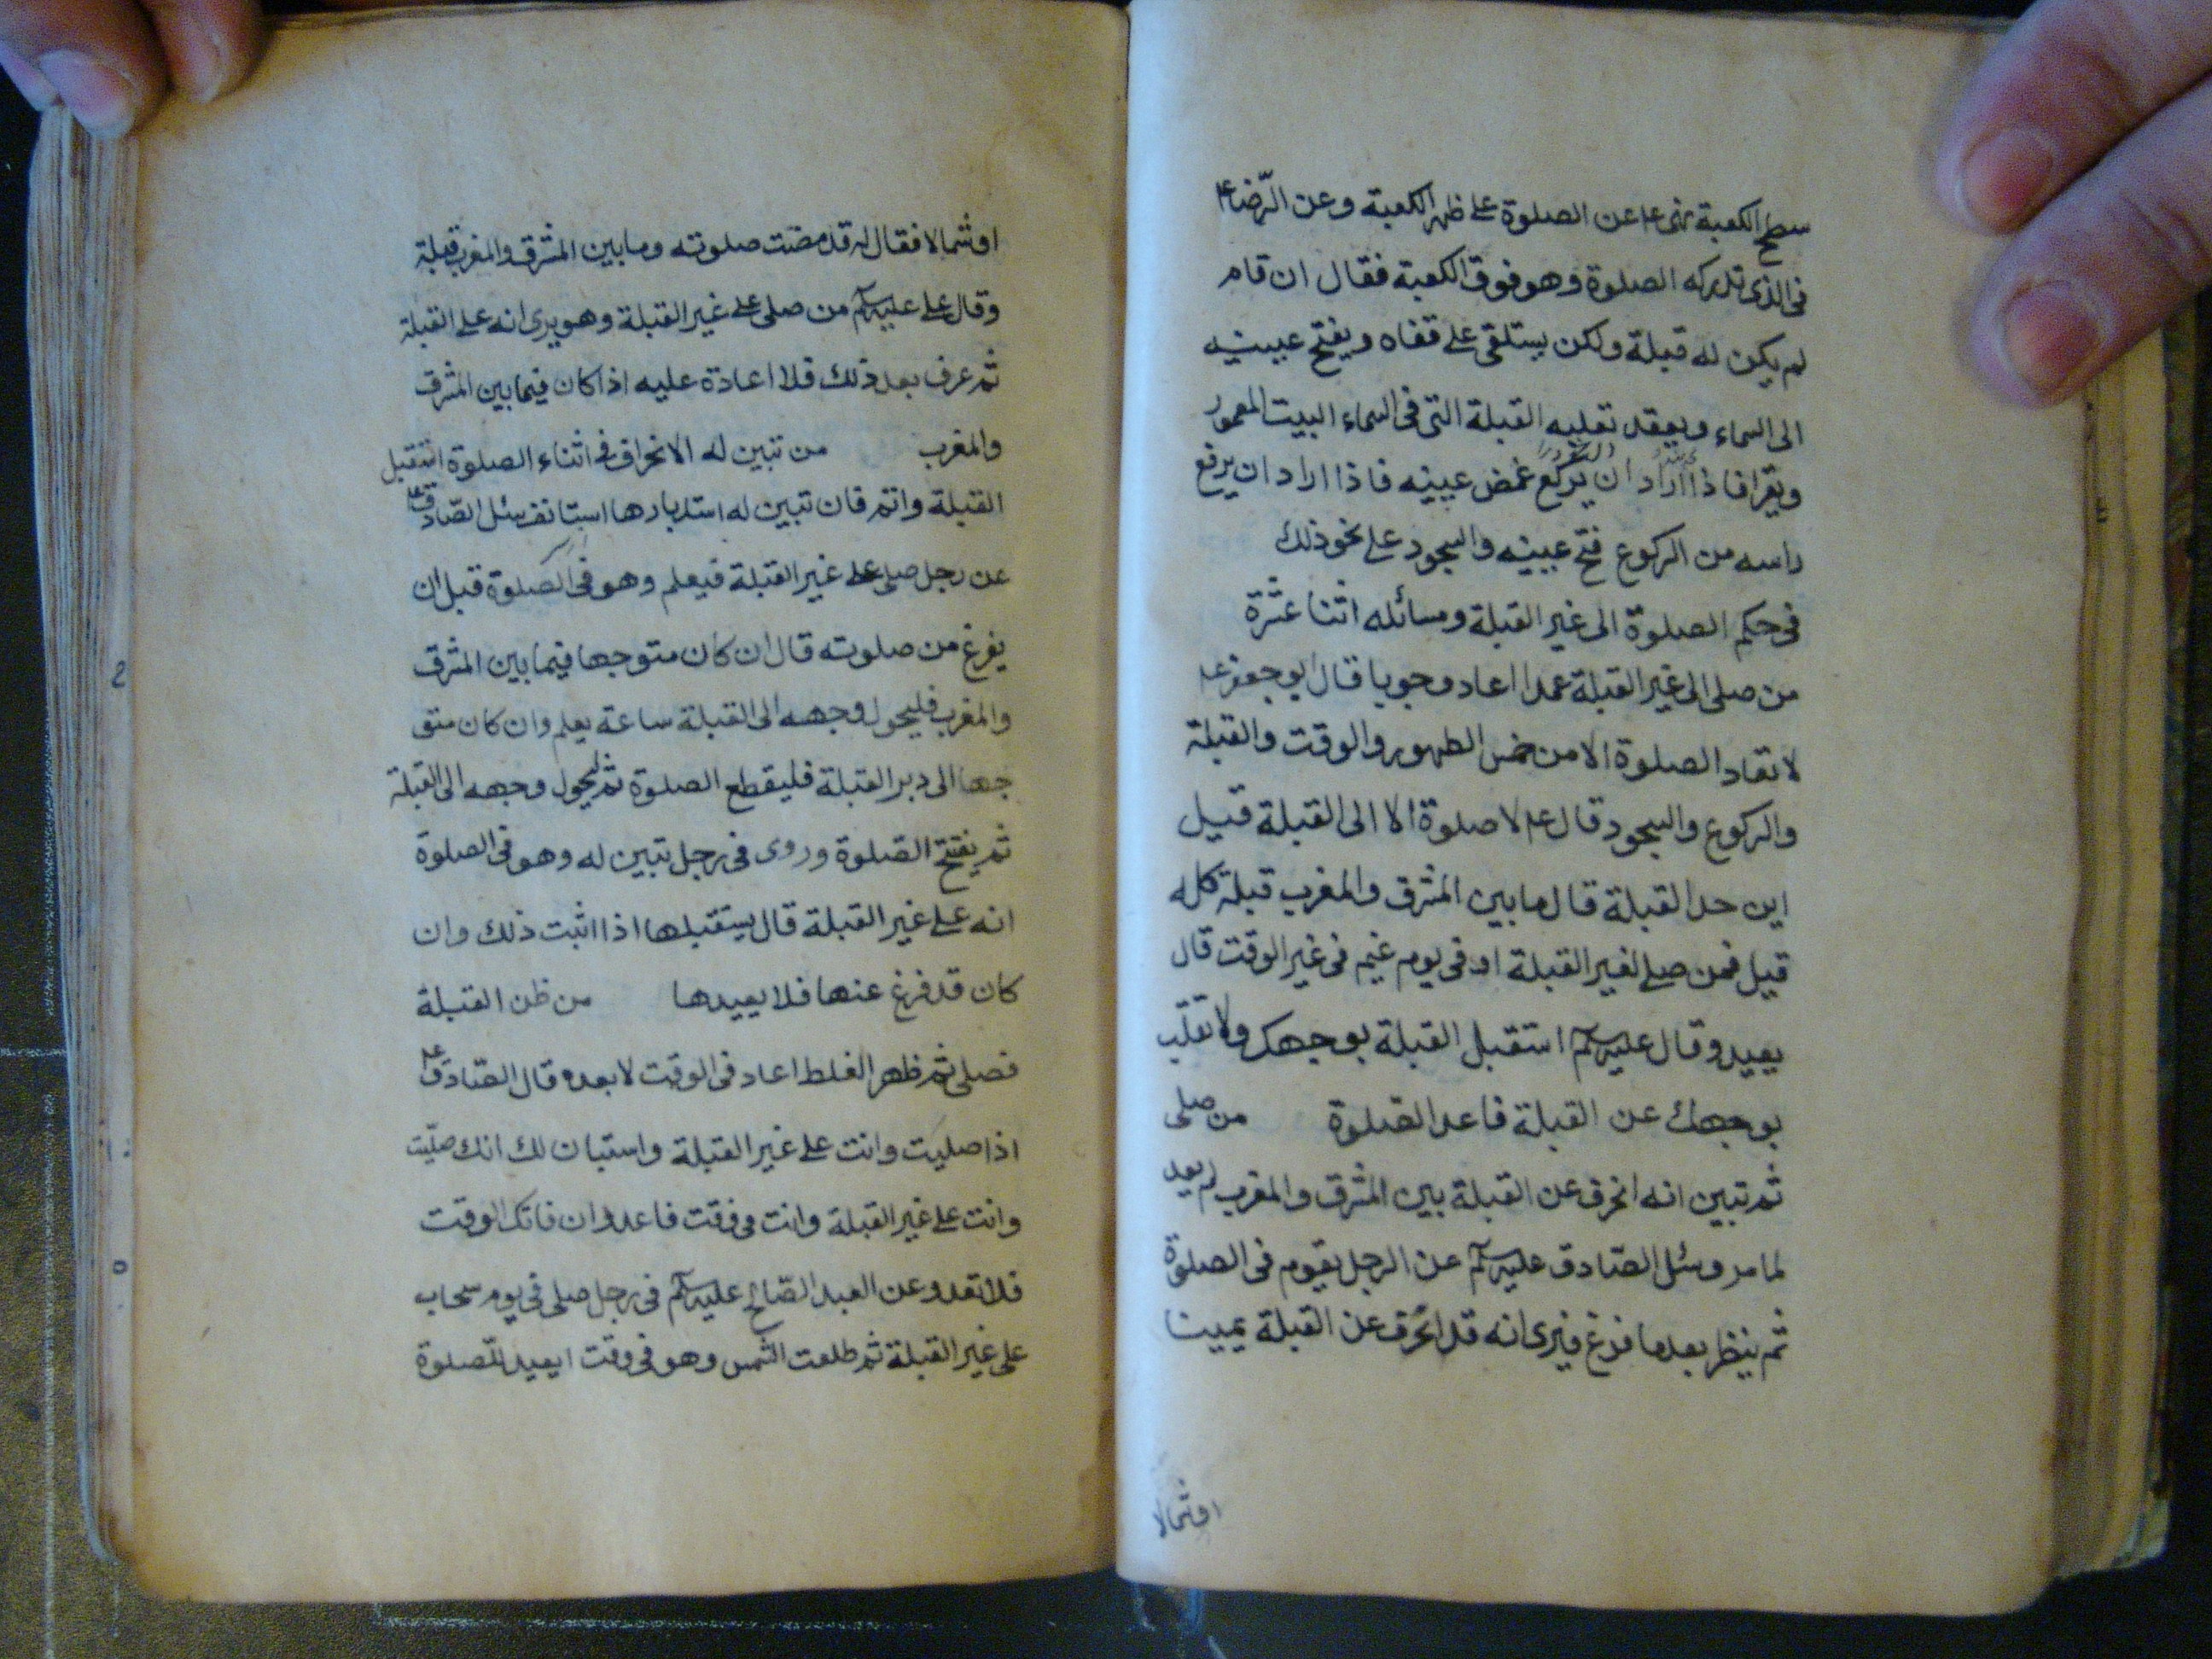 سطح الكعبة نهى ع عن الصلوة على ظهر الكعبة وعن الرّضا ع
فى الذى تدركه الصلوة وهو فوق الكعبة فقال ان قام
لم يكن له قبلة ولكن يستلقى على قفاه ويفتح عينيه
الى السماء ويعقد بقلبه القبلة التى فى السماء البيت المعمور
ويقرا فاذا اراد ان يركع غمض عينيه فاذا اراد ان يرفع
راسه من الركوع فتح عينيه والسجود على نحو ذلك
فى حكم الصلوة الى غير القبلة ومسائله اثنا عشرة
من صلى الى غير القبلة عمدا اعاد وجوبا قال ابو جعفر ع
لا تعاد الصلوة الا من خمس الطهور والوقت والقبلة
والركوع والسجود قال ع لا صلوة الا الى القبلة قيل
اين حد القبلة قال ما بين المشرق والمغرب قبلة كله
قيل فمن صلى لغير القبلة او فى يوم غيم فى غير الوقت قال
يعيد وقال عليه السلام استقبل القبلة بوجهك ولا تقلب
بوجهك عن القبلة فاعد الصلوة من صلى
ثم تبين انه انحرف عن القبلة بين المشرق والمغرب لم يعد
لما مر وسئل الصّادق عليه السلام عن الرجل يقوم فى الصلوة
ثم ينظر بعد ما فرغ فيرى انه قد انحرف عن القبلة يمينا
او شمالا
او شمالا فقال له قد مضت صلوته وما بين المشرق والمغرب قبلة
وقال على عليه السلام من صلى على غير القبلة وهو يرى انه على القبلة
ثم عرف بعد ذلك فلا اعادة عليه اذا كان فيما بين المشرق
والمغرب من تبين له الانحراف فى اثناء الصلوة استقبل
القبلة واتم فان تبين له استدبارها استانف سئل الصّادق ع
عن رجل صلى على غير القبلة فيعلم وهو فى الصلوة قبل ان
يفرغ من صلوته قال ان كان متوجها فيما بين المشرق
والمغرب فليحول وجهه الى القبلة ساعة يعلم وان كان متو
جها الى دبر القبلة فليقطع الصلوة ثم ليحول وجهه الى القبلة
ثم يفتتح الصّلوة وروى فى رجل تبين له وهو فى الصلوة
انه على غير القبلة قال يستقبلها اذا اثبت ذلك وان
كان قد فرغ عنها فلا يعيدها من ظن القبلة
فصلى ثم ظهر الغلط اعاد فى الوقت لا بعده قال الصّادق ع
اذا صليت وانت على غير القبلة واستبان لك انك صلّيت
وانت على غير القبلة وانت فى وقت فاعد وان فاتك الوقت
فلا تعد وعن العبد الصّالح عليه السلام فى رجل صلى فى يوم سحاب
على غير القبلة ثم طلعت الشمس وهو فى وقت ايعيد الصّلوة